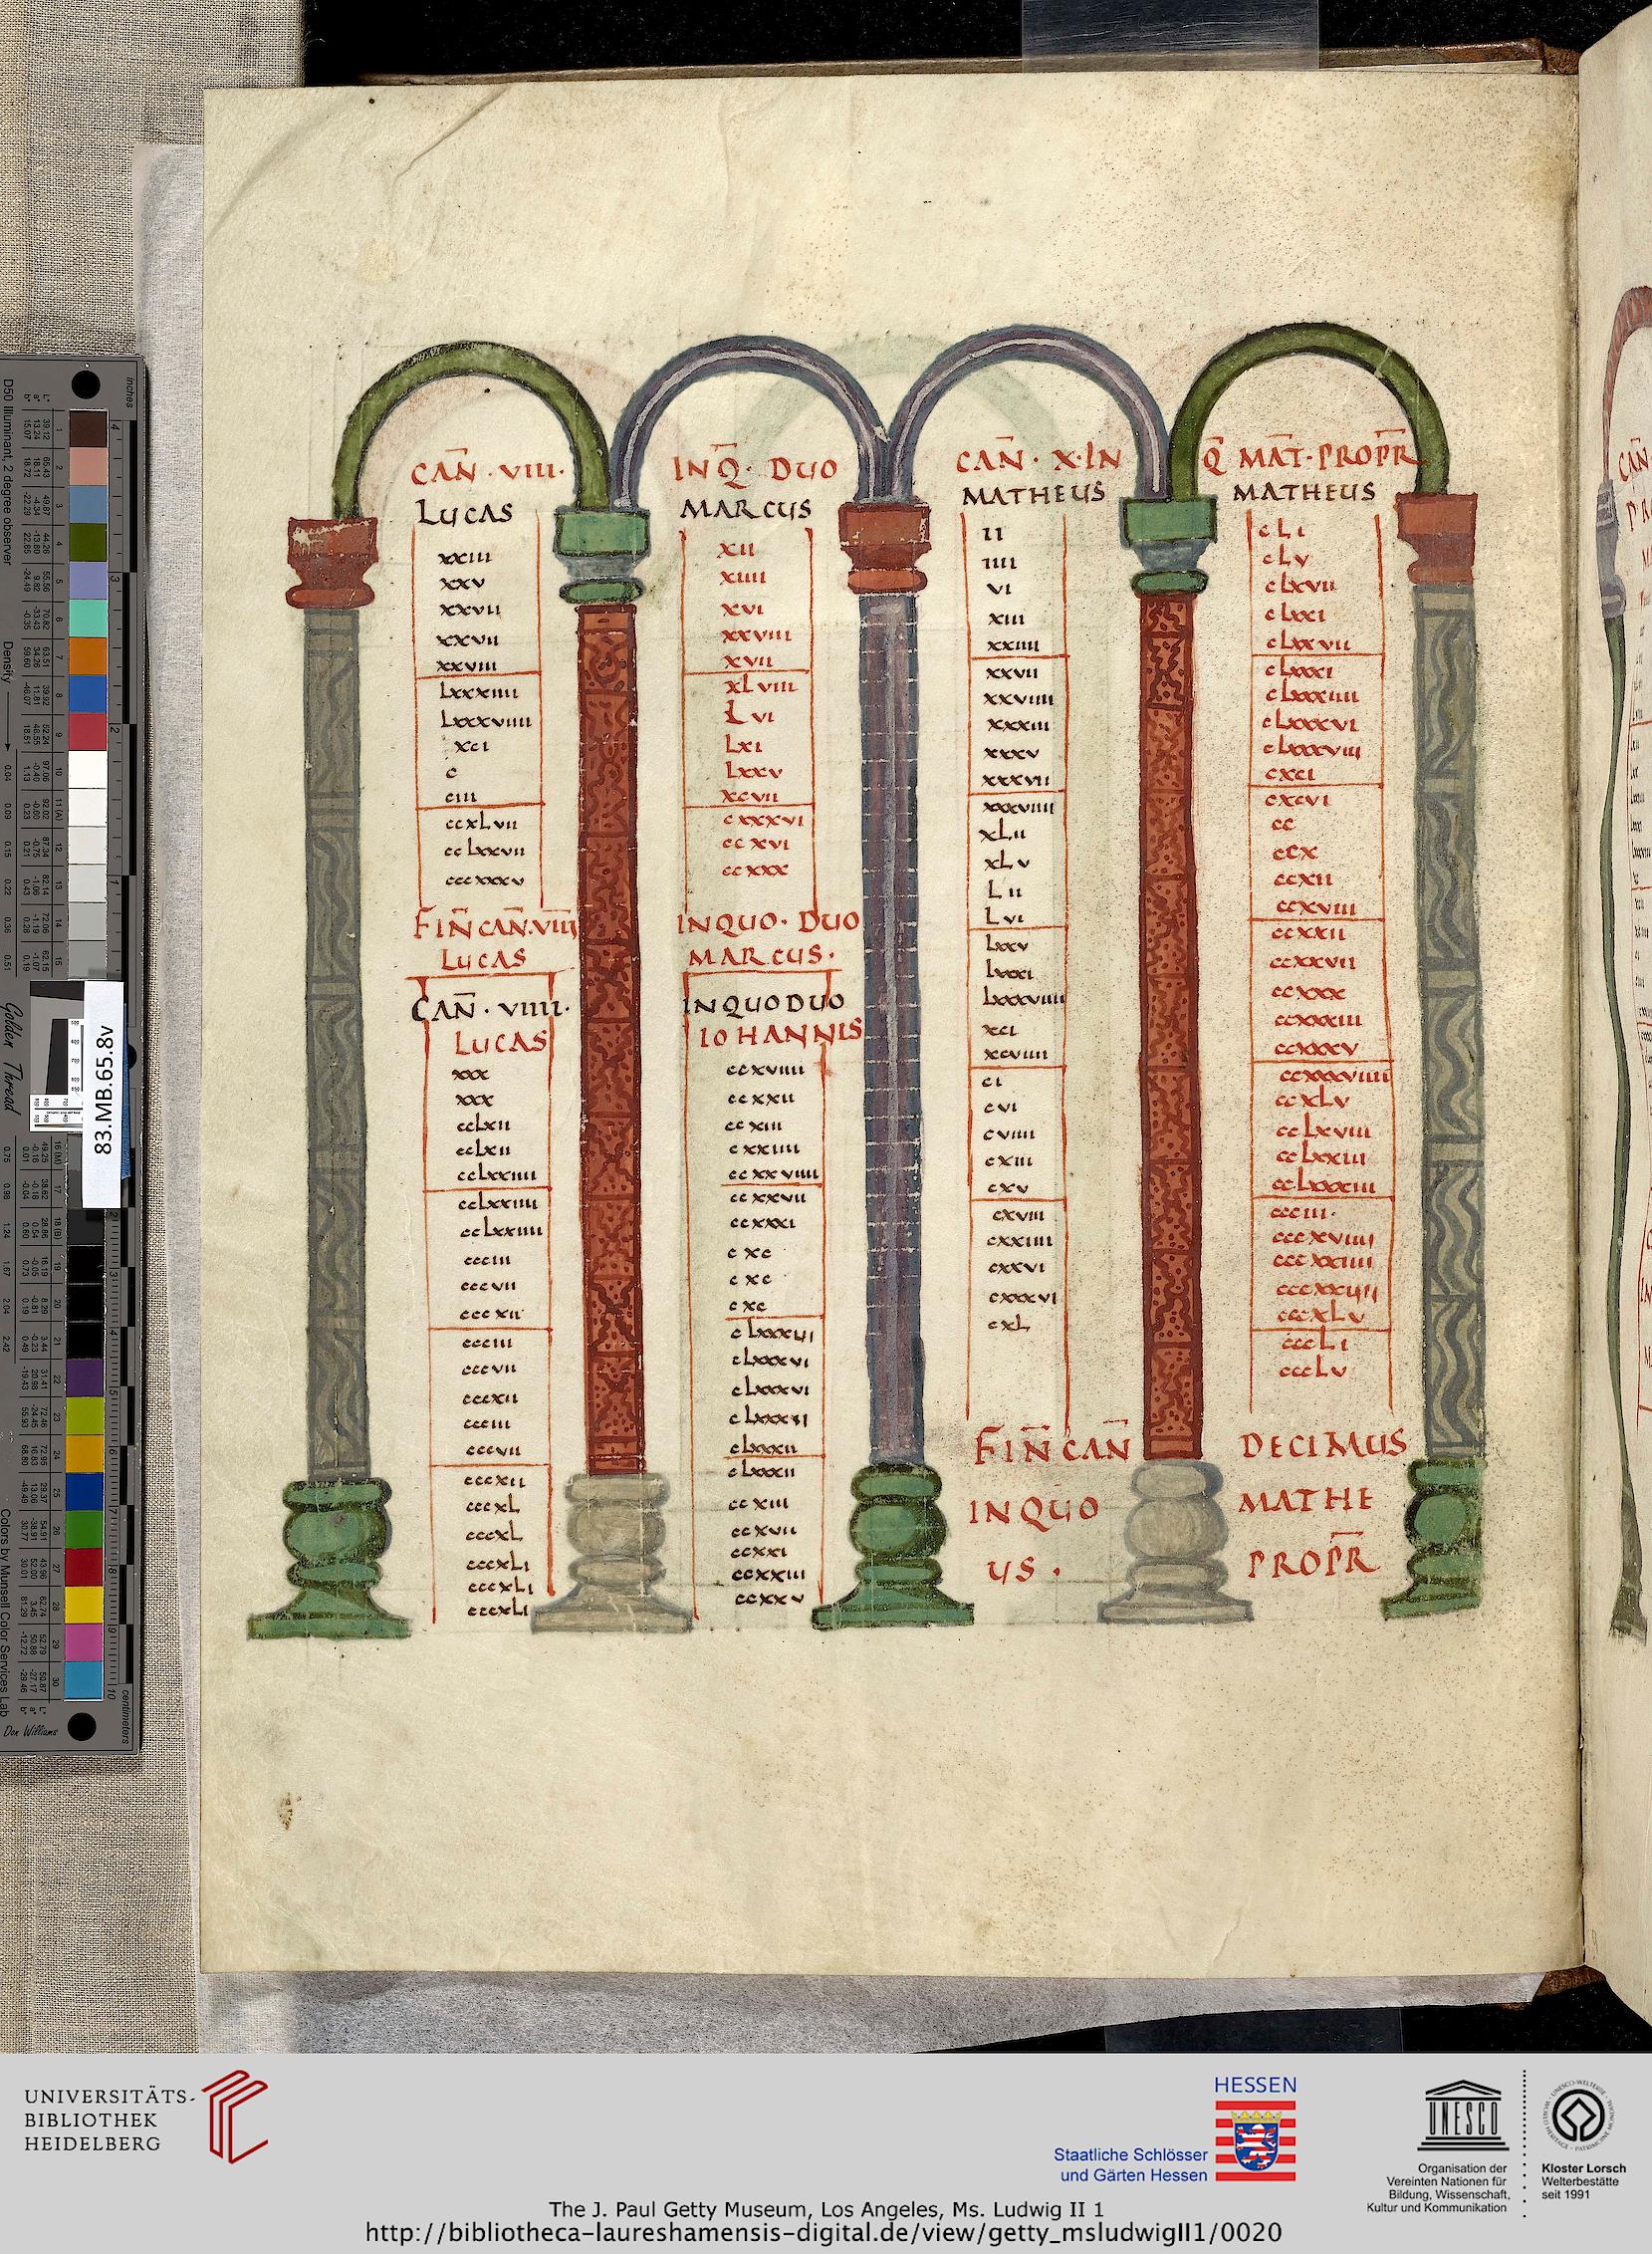 CAN̄ · VIII ·
LUCAS
xxiii
xxv
xxvii
xxvii
xxviii
Lxxxiiii
Lxxxviiii
xci
c
ciii
ccxLvii
ccLxxvii
cccxxxv
FIN̄ CAN̄. VIII
LUCAS
CAN̄ · VIIII ·
LUCAS
xxx
xxx
ccLxii
ccLxii
ccLxxiiii
ccLxxiiii
ccLxxiiii
ccciii
cccvii
cccxii
ccciii
cccvii
cccxii
ccciii
cccvii
cccxii
cccxL
cccxL
cccxLi
cccxLi
cccxLi
INQ̄ · DUO
MARCUS
xii
xiiii
xvi
xxviii
xvii
xLviii
Lvi
Lxi
Lxxv
xcvii
cxxxvi
ccxvi
ccxxx
INQUO · DUO
MARCUS ·
INQUO DUO
IOHANNIS
ccxviiii
ccxxii
ccxiii
cxxiiii
ccxxviiii
ccxxvii
ccxxxi
cxc
cxc
cxc
cLxxxvi
cLxxxvi
cLxxxvi
cLxxxvi
cLxxxii
cLxxxii
ccxiii
ccxvii
ccxxi
ccxxiii
ccxxv
CAN̄ · X · IN
MATHEUS
ii
iiii
vi
xiii
xxiiii
xxvii
xxviiii
xxxiii
xxxv
xxxvii
xxxviiii
xLii
xLv
Lii
Lvi
Lxxv
Lxxxi
Lxxxviiii
xci
xcviiii
ci
cvi
cviiii
cxiii
cxv
cxviii
cxxiiii
cxxvi
cxxxvi
cxL
FIN̄ CAN̄
INQUO
US ·
Q̄ MAT̄ · PROPR̄
MATHEUS
cLi
cLv
cLxvii
cLxxi
cLxxvii
cLxxxi
cLxxxiiii
cLxxxvi
cLxxxviii
cxci
cxcvi
cc
ccx
ccxii
ccxviii
ccxxii
ccxxvii
ccxxx
ccxxxiii
ccxxxv
ccxxxviiii
ccxLv
ccLxviii
ccLxxiii
ccLxxxiii
ccciii ·
cccxviiii
cccxxiiii
cccxxvii
cccxLv
cccLi
cccLv
DECIMUS
MATHE
PROPR̄
83.MB.65.8v
inches
centimeters
D50 Illuminant, 2 degree observer
Density
Golden Thread
Colors by Munsell Color Services Lab
Don Williams
UNIVERSITÄTS-
BIBLIOTHEK
HEIDELBERG
HESSEN
Staatliche Schlösser
und Gärten Hessen
UNESCO
Organisation der
Vereinten Nationen für
Bildung, Wissenschaft,
Kultur und Kommunikation
Kloster Lorsch
Welterbestätte
seit 1991
The J. Paul Getty Museum, Los Angeles, Ms. Ludwig II 1
http://bibliotheca-laureshamensis-digital.de/view/getty_msludwigII1/0020